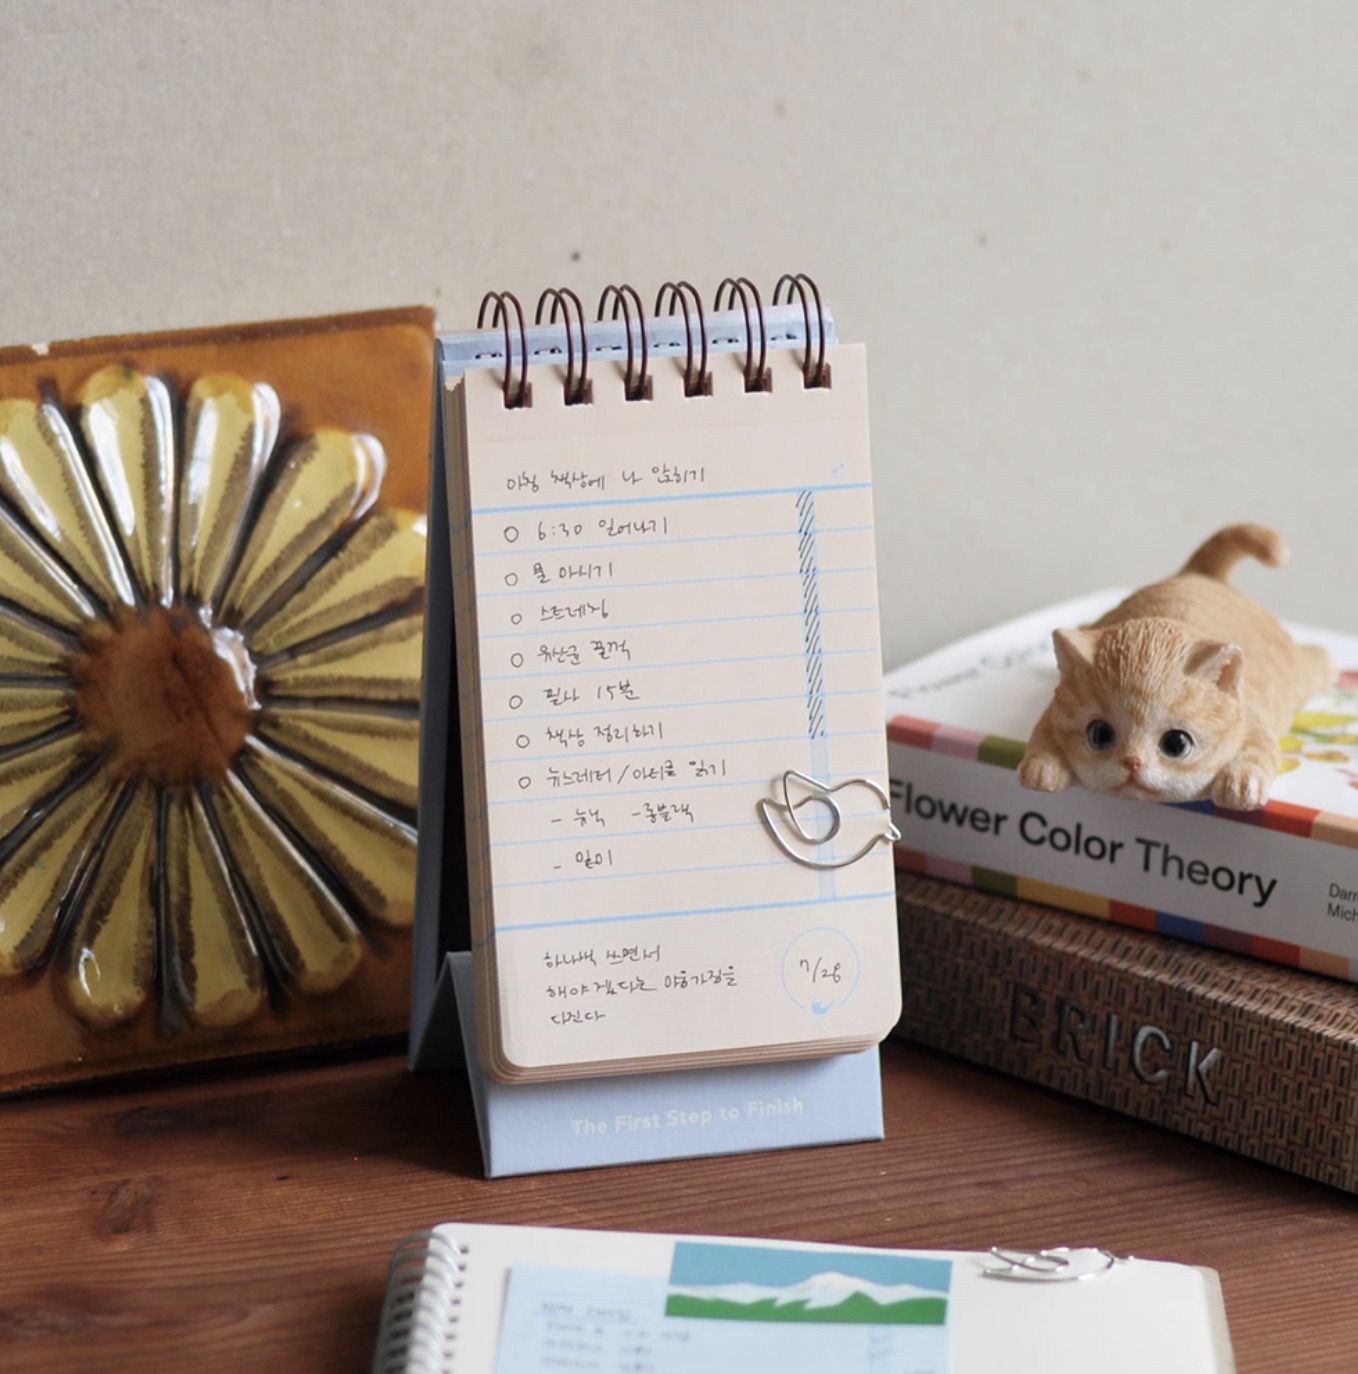 아침 책상에 나 앉히기
6:30 일어나기
물 마시기
스트레칭
유산균 꿀꺽
필사 15분
책상 정리하기
뉴스레터/아티클 읽기
- 뉴닉 - 롱블랙
- 일미
하나씩 쓰면서
해야겠다는 마음가짐을
다진다
7/28
The First Step to Finish
Flower Color Theory
Darr
Mich
BRICK